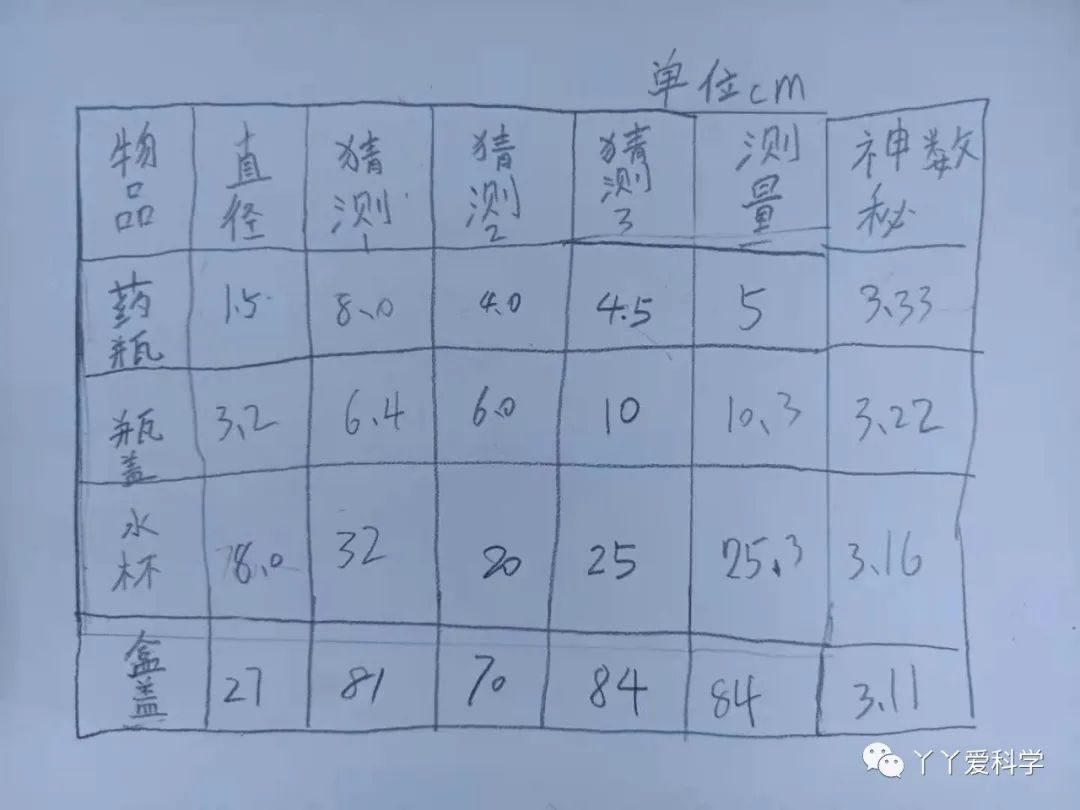 单位cm
物品 直径 猜测1 猜测2 猜测3 测量 神秘数
药瓶 1.5 8.0 4.0 4.5 5 3.33
瓶盖 3.2 6.4 6.0 10 10.3 3.22
水杯 8.0 32 20 25 25.3 3.16
盒盖 27 81 70 84 84 3.11
丫丫爱科学